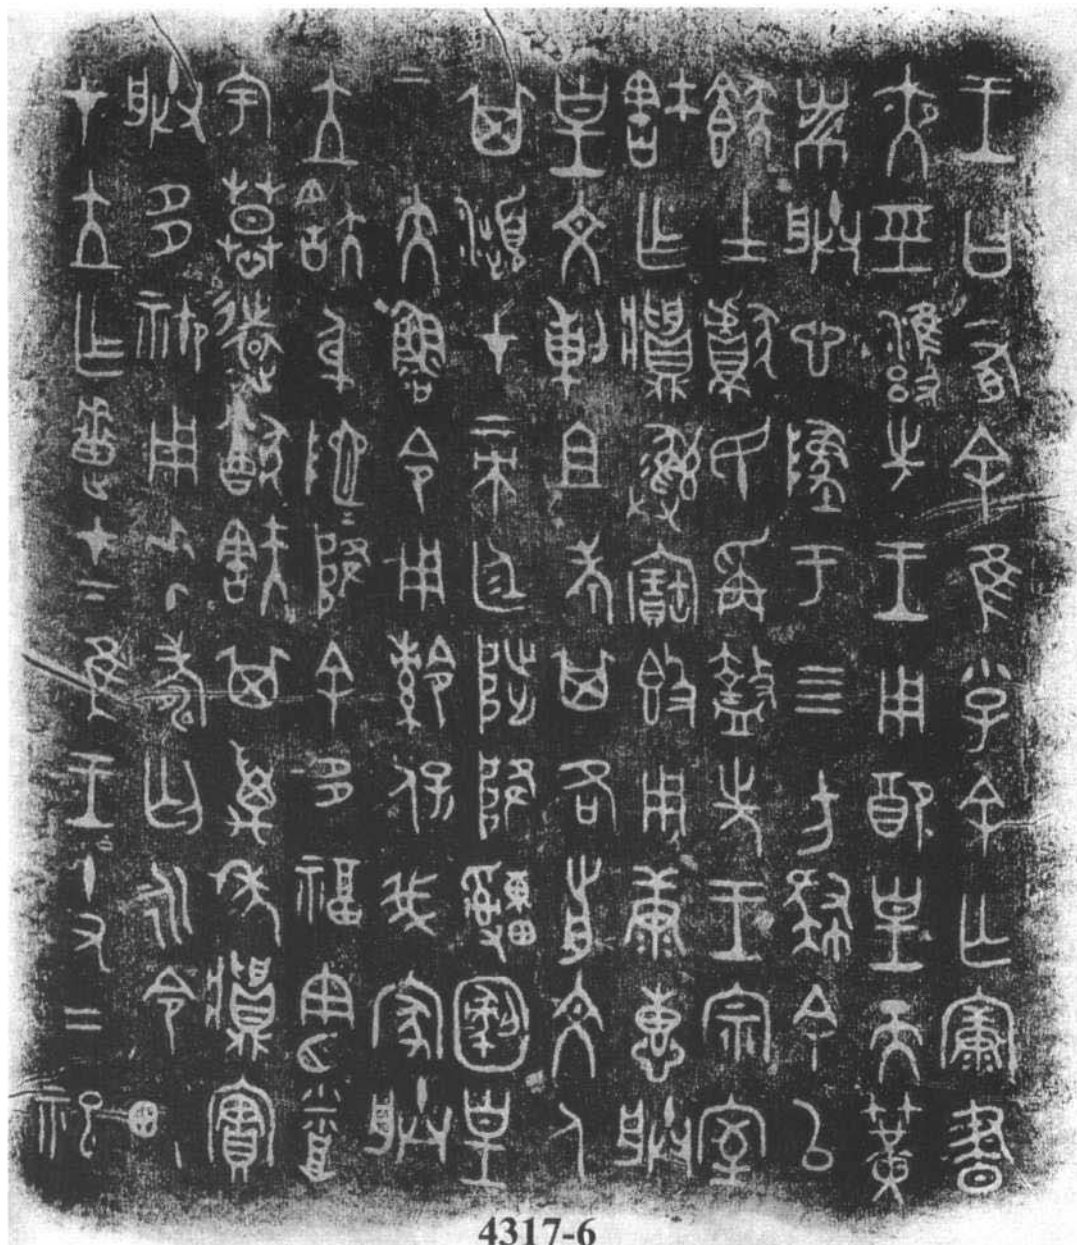 王曰有余隹小子余亡康晝
夜巠雝先王用配皇天簧
黹朕心墜于四方肆余以
士獻民爯盩先王宗室
㝬乍彝寶𣪘用康惠朕
皇文剌且考其各前文人
其瀕才帝廷陟降皇
帝大魯令用保我家朕
立㝬身阤=降余多福憲烝
宇慕遠猷㝬其萬年實
朕多禦用壽匄永令畯
才立乍疐才下隹王十又二祀
4317-6